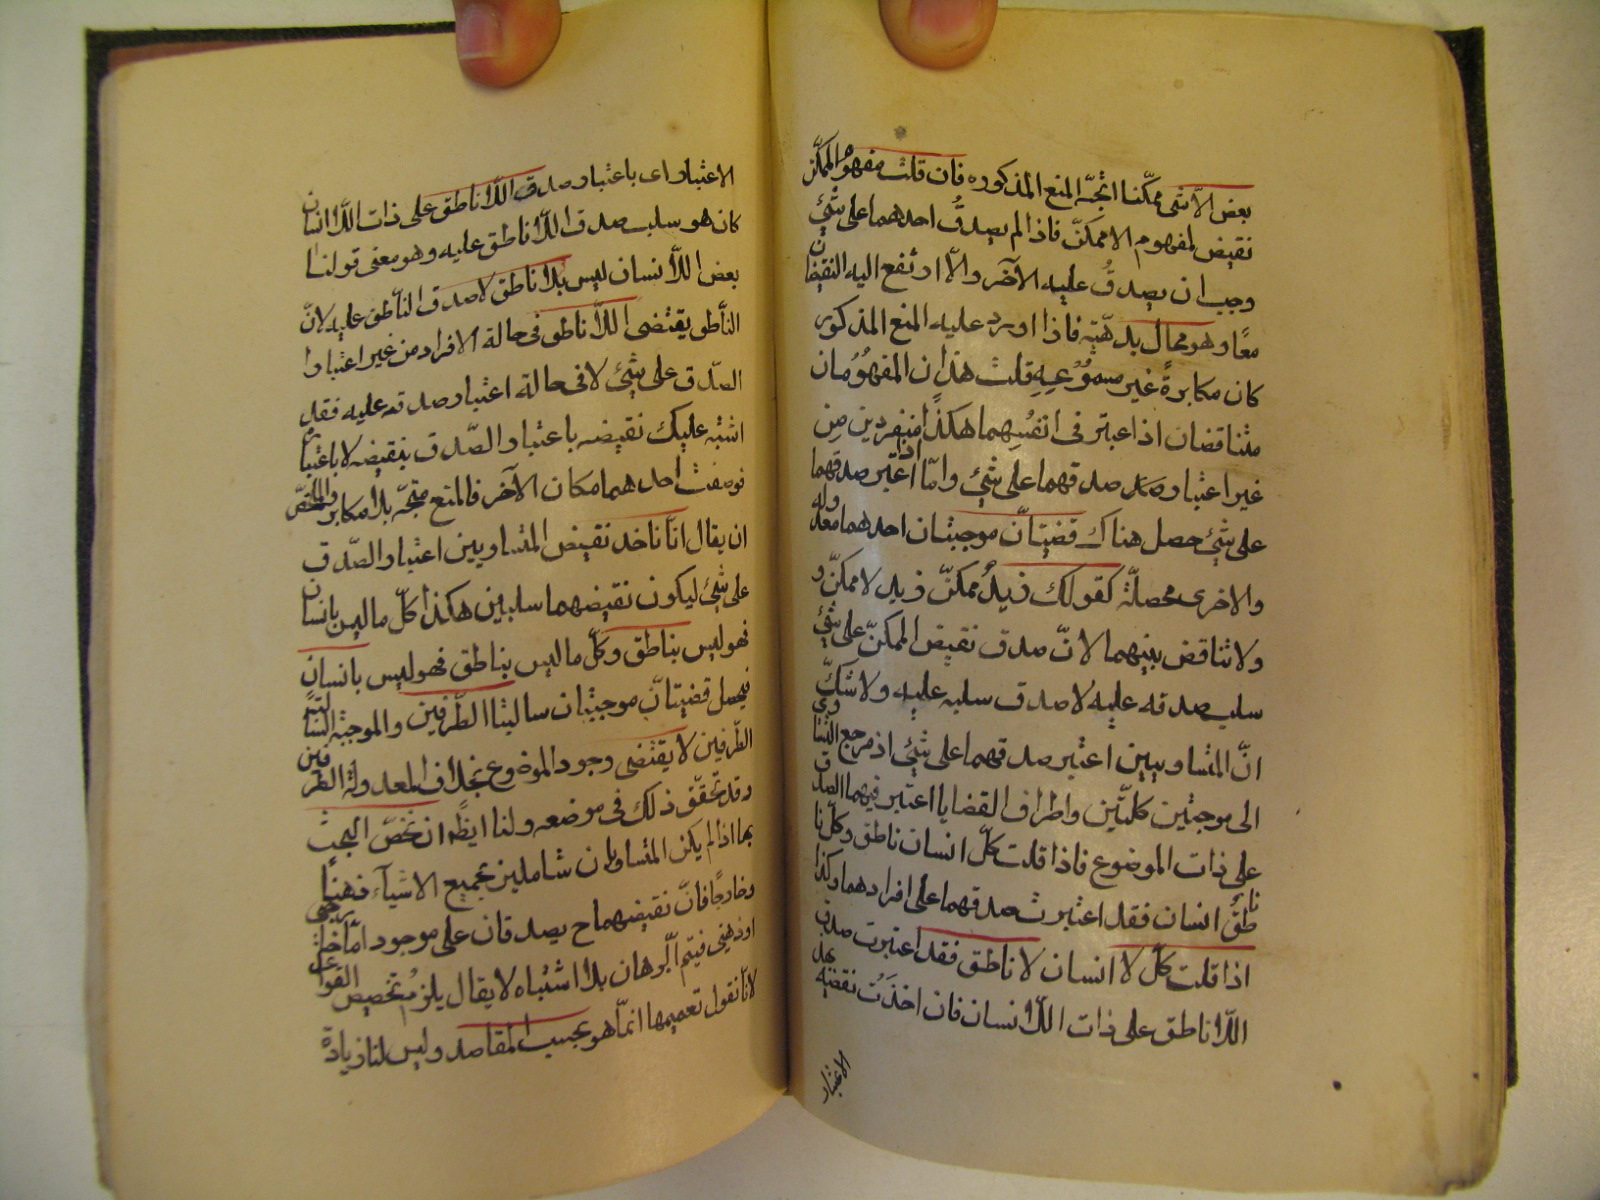 بعض الاشئ ممكنا اتجه المنع المذكوره فان قلت مفهوم الممكن
نقيض لمفهوم الاممكن فاذا لم يصدق احدهما على شئ
وجب ان يصدق عليه الآخر والا ارتفع اليه النقيضان
معا وهو محال بدهته فاذا اورد عليه المنع المذكور
كان مكابرة غير مسموعه قلت هذان المفهومان
متناقضان اذا اعتبر فى انفسهما هكذا منفردين من
غير اعتبار صدقهما على شئ واما اذا اعتبر صدقهما
على شئ حصل هناك قضيتان موجبتان احدهما معدوله
والاخرى محصلة كقولك زيد ممكن زيد لاممكن و
ولا تناقض بينهما لان صدق نقيض الممكن على شئ
سلب صدقه عليه لا صدق سلبه عليه ولا شك
ان المتساويين اعتبر صدقهما على شئ اذ مرجع التساوى
الى موجبتين كليتين واطراف القضايا اعتبر فيهما الصدق
على ذات الموضوع فاذا قلت كل انسان ناطق وكل نا
طق انسان فقد اعتبرت صدقهما على افرادهما وكذا
اذا قلت كل لا انسان لا ناطق فقد اعتبرت صدق
اللا ناطق على ذات اللا انسان فان اخذت نقضيه بهذ
الاعتبار
الاعتبار اى باعتبار صدق اللا ناطق على ذات اللا انسان
كان هو سلب صدق اللا ناطق عليه وهو معنى قولنا
بعض اللا انسان ليس بلا ناطق لا صدق الناطق عليه لان
الناطق يقتضى اللا ناطق فى حالة الافراد من غير اعتبار
الصدق على شئ لا فى حالة اعتبار صدقه عليه فقد
اشتبه عليك نقيضه باعتبار الصدق بنقيضه لا باعتباره
فوضعت احدهما مكان الآخر فالمنع متجه بلا مكابر والملخص
ان يقال انا ناخذ نقيض المتساويين اعتبار الصدق
على شئ ليكون نقيضهما سلبين هكذا كل ما ليس بانسان
فهو ليس بناطق وكل ما ليس بناطق فهو ليس بانسان
فيحصل قضيتان موجبتان سالبتا الطرفين والموجبة السالبة
الطرفين لا يقتضى وجود الموضوع بخلاف المعدولة الطرفين
وقد تحقق ذلك فى موضعه ولنا ايضا ان نخص البحث
بما اذا لم يكن المتساويان شاملين لجميع الاشيآء ذهنيا
وخارجا فان نقيضهما ح يصدقان على موجود اما خارجى
او ذهنى فيتم البرهان بلا اشتباه لا يقال يلزم تخصيص القواعد
لانا نقول تعميمها انما هو بحسب المقاصد وليس لنا زيادة